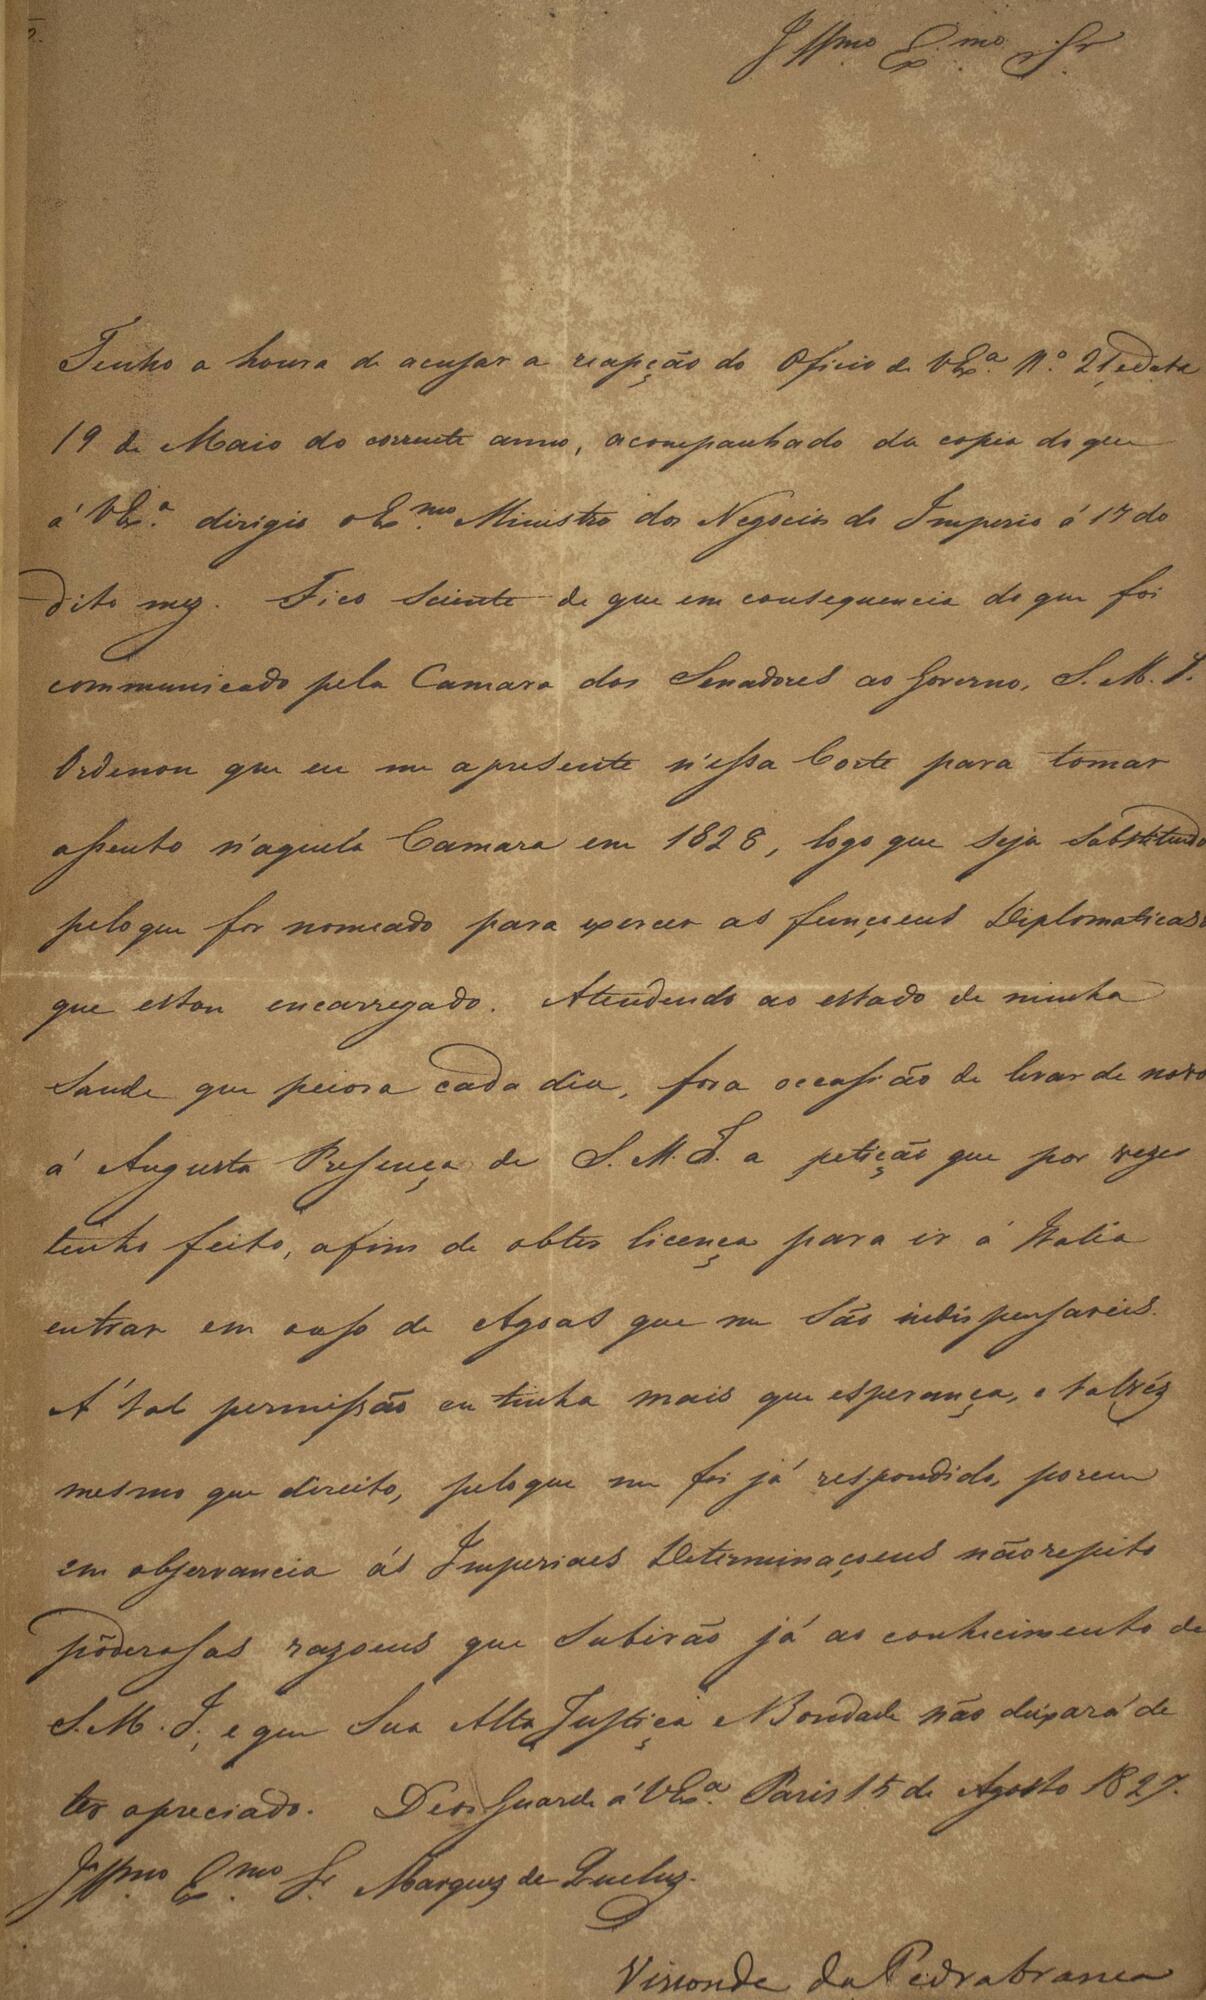 Illmo Exmo Snr
Tenho a honra de acusar a recepção do Oficio de V Exa. N.o 21, e data
19 de Maio do corrente anno, acompanhado da copia do que
á V Exa. dirigio o Exmo Ministro dos Negocios do Imperio á 17 do
dito mez. Fico sciente de que em consequencia do que foi
communicado pela Camara dos Senadores ao Governo, S. M. I.
Ordenou que eu me apresente n'essa Corte para tomar
assento n'aquela Camara em 1828, logo que seja substituido
pelo que for nomeado para exercer as funçoens Diplomaticas
que estou encarregado. Atendendo ao estado de minha
saude que peiora cada dia, fora occasião de levar de novo
á Augusta Presença de S. M. I. a petição que por vezes
tenho feito, afim de obter licença para ir á Italia
entrar em ouso de Agoas que me são indispensaveis.
Á tal permissão eu tinha mais que esperança, e talvéz
mesmo que direito, pelo que me foi já respondido, porem
em observancia ás Imperiaes Determinaçoens não repito
poderosas razoens que subirão já ao conhecimento de
S. M. I., e que Sua Alta Justiça e Bondade não deixará de
ter apreciado. Deos Guarde á V Exa. Paris 15 de Agosto 1827.
Illmo Exmo Sr Marquez de Queluz.
Visconde da Pedrabranca